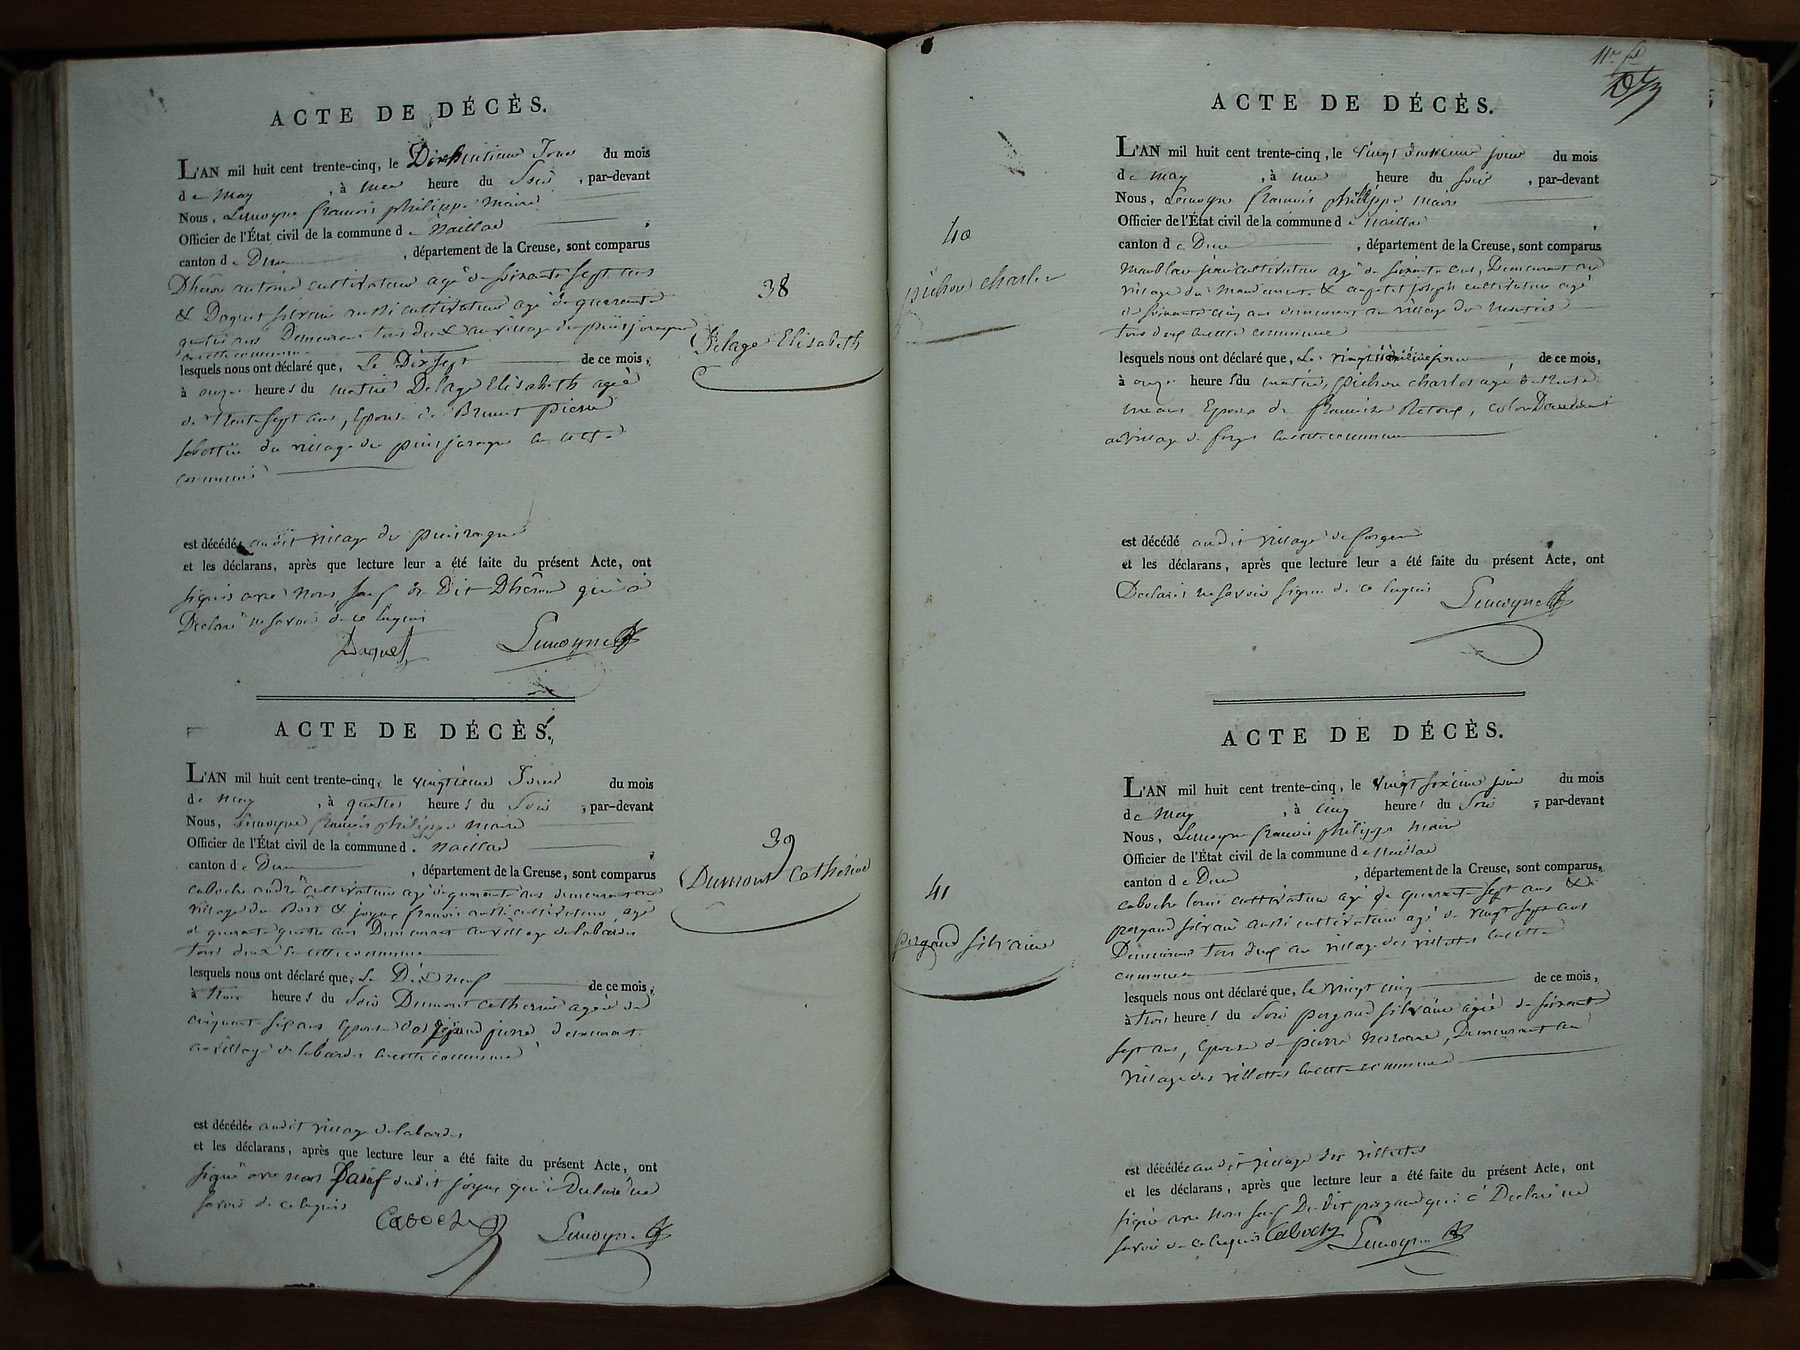 ACTE DE DÉCÈS.
L'AN mil huit cent trente-cinq, le Dixhuitieme Jour du mois
de May, à une heure du Soir, par-devant
Nous, Lemoyne françois philippe Maire
Officier de l'État civil de la commune de Naillat,
canton de Dun, département de la Creuse, sont comparus
Dhéron antoine cultivateur agé de soixante sept ans
& Daguet silvain aussi cultivateur agé de quarante
quatre ans Demeurant tous deux au village du
en cette commune
lesquels nous ont déclaré que, Le Dix sept de ce mois,
à onze heures du matin Delage Elisabeth agée
de trente sept ans, Epouse de Brunet pierre
du village du en cette
commune
est décédée audit village du
et les déclarans, après que lecture leur a été faite du présent Acte, ont
signés avec Nous, sauf le Dit Dhéron qui a
Déclaré ne savoir de ce Enquis
Daguet Lemoyne
38
Delage Elisabeth
ACTE DE DÉCÈS.
L'AN mil huit cent trente-cinq, le vingtieme Jour du mois
de May, à quatre heures du Soir, par-devant
Nous, Lemoyne françois philippe maire
Officier de l'État civil de la commune de Naillat,
canton de Dun, département de la Creuse, sont comparus
caboche andré cultivateur agé de quarante ans demeurant au
village du Bois & joyeux françois aussi cultivateur, agé
de quarante quatre ans Demeurant au village de labardes
tous deux en cette commune
lesquels nous ont déclaré que, Le Dix neuf de ce mois,
à trois heures du Soir Dumont catherine agée de
cinquante six ans Epouse de pierre demeurant
au village de labardes en cette commune
est décédée audit village de labardes
et les déclarans, après que lecture leur a été faite du présent Acte, ont
signé avec nous sauf ledit joyeux qui a Déclaré ne
savoir de ce enquis
Caboche Lemoyne
39
Dumont Catherine
ACTE DE DÉCÈS.
L'AN mil huit cent trente-cinq, le vingt deuxieme jour du mois
de may, à une heure du soir, par-devant
Nous, Lemoyne françois philippe maire
Officier de l'État civil de la commune de Naillat,
canton de Dun, département de la Creuse, sont comparus
cultivateur agé de soixante ans, Demeurant au
village du & aupetit joseph cultivateur agé
de soixante cinq ans demeurant au village du
tous deux en cette commune
lesquels nous ont déclaré que, Le vingt jour de ce mois,
à onze heures du matin, pichon charles agé de trente
ans Epoux de françoise, colon Demeurant
au village de forges en cette commune
est décédé audit village de forges
et les déclarans, après que lecture leur a été faite du présent Acte, ont
Déclarés ne savoir signer de ce Enquis
Lemoyne
40
pichon charles
ACTE DE DÉCÈS.
L'AN mil huit cent trente-cinq, le vingt sixieme jour du mois
de May, à cinq heures du Soir, par-devant
Nous, Lemoyne françois philippe Maire
Officier de l'État civil de la commune de Naillat
canton de Dun, département de la Creuse, sont comparus,
caboche louis cultivateur agé de quarante sept ans &
pergaud silvain aussi cultivateur agé de vingt sept ans
Demeurant tous deux au village des villettes en cette
commune
lesquels nous ont déclaré que, le vingt cinq de ce mois,
à trois heures du Soir pergaud silvaine agée de soixante
sept ans, Epouse de pierre, Demeurant au
village des villettes en cette commune
est décédée audit village des villettes
et les déclarans, après que lecture leur a été faite du présent Acte, ont
signé avec Nous sauf Le Dit pergaud qui a Déclaré ne
savoir de ce Enquis Caboche Lemoyne
41
pergaud silvaine